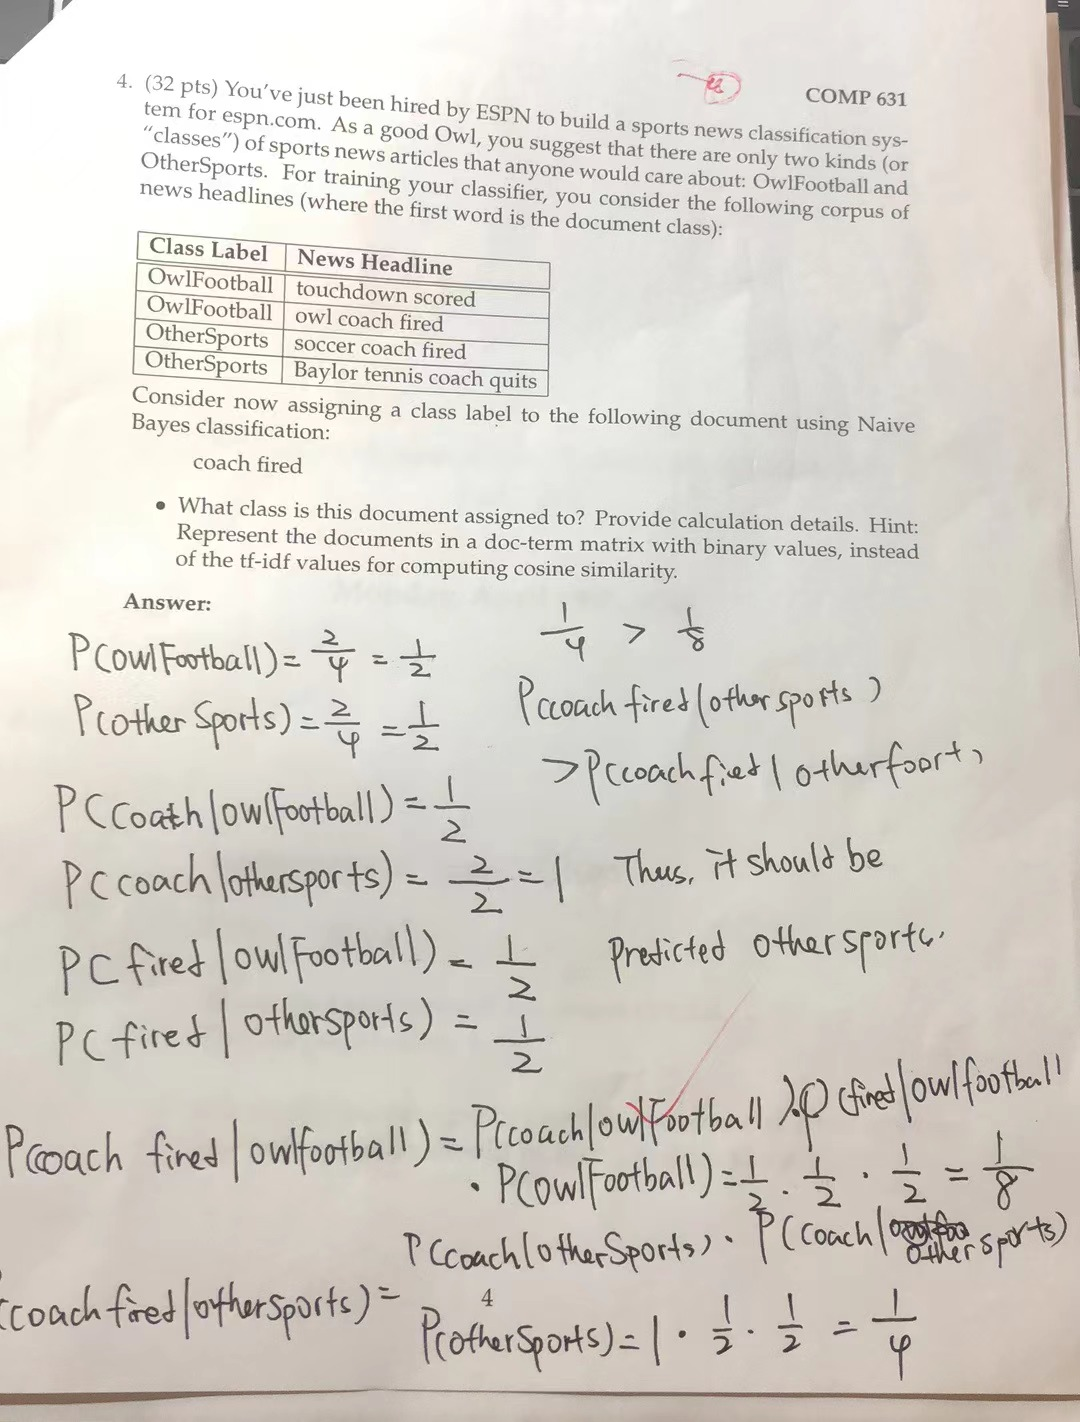 COMP 631
4. (32 pts) You've just been hired by ESPN to build a sports news classification sys-
tem for espn.com. As a good Owl, you suggest that there are only two kinds (or
"classes") of sports news articles that anyone would care about: OwlFootball and
OtherSports. For training your classifier, you consider the following corpus of
news headlines (where the first word is the document class):
Class Label News Headline
OwlFootball touchdown scored
OwlFootball owl coach fired
OtherSports soccer coach fired
OtherSports Baylor tennis coach quits
Consider now assigning a class label to the following document using Naive
Bayes classification:
coach fired
• What class is this document assigned to? Provide calculation details. Hint:
Represent the documents in a doc-term matrix with binary values, instead
of the tf-idf values for computing cosine similarity.
Answer:
P(owlFootball) = 2/4 = 1/2
P(other Sports) = 2/4 = 1/2
P(Coath | owlFootball) = 1/2
P(coach | othersports) = 2/2 = 1
P(fired | owlFootball) = 1/2
P(fired | othersports) = 1/2
1/4 > 1/8
P(coach fired | other sports)
> P(coach fied | otherfoort)
Thus, it should be
Predicted other sports.
P(coach fired | owlfootball) = P(coach | owlFootball) · P(fired | owlfootball
· P(owlFootball) = 1/2 · 1/2 · 1/2 = 1/8
P(coach | otherSports) · P(coach | other sports)
(coach fired | othersports) =
4
P(otherSports) = 1 · 1/2 · 1/2 = 1/4